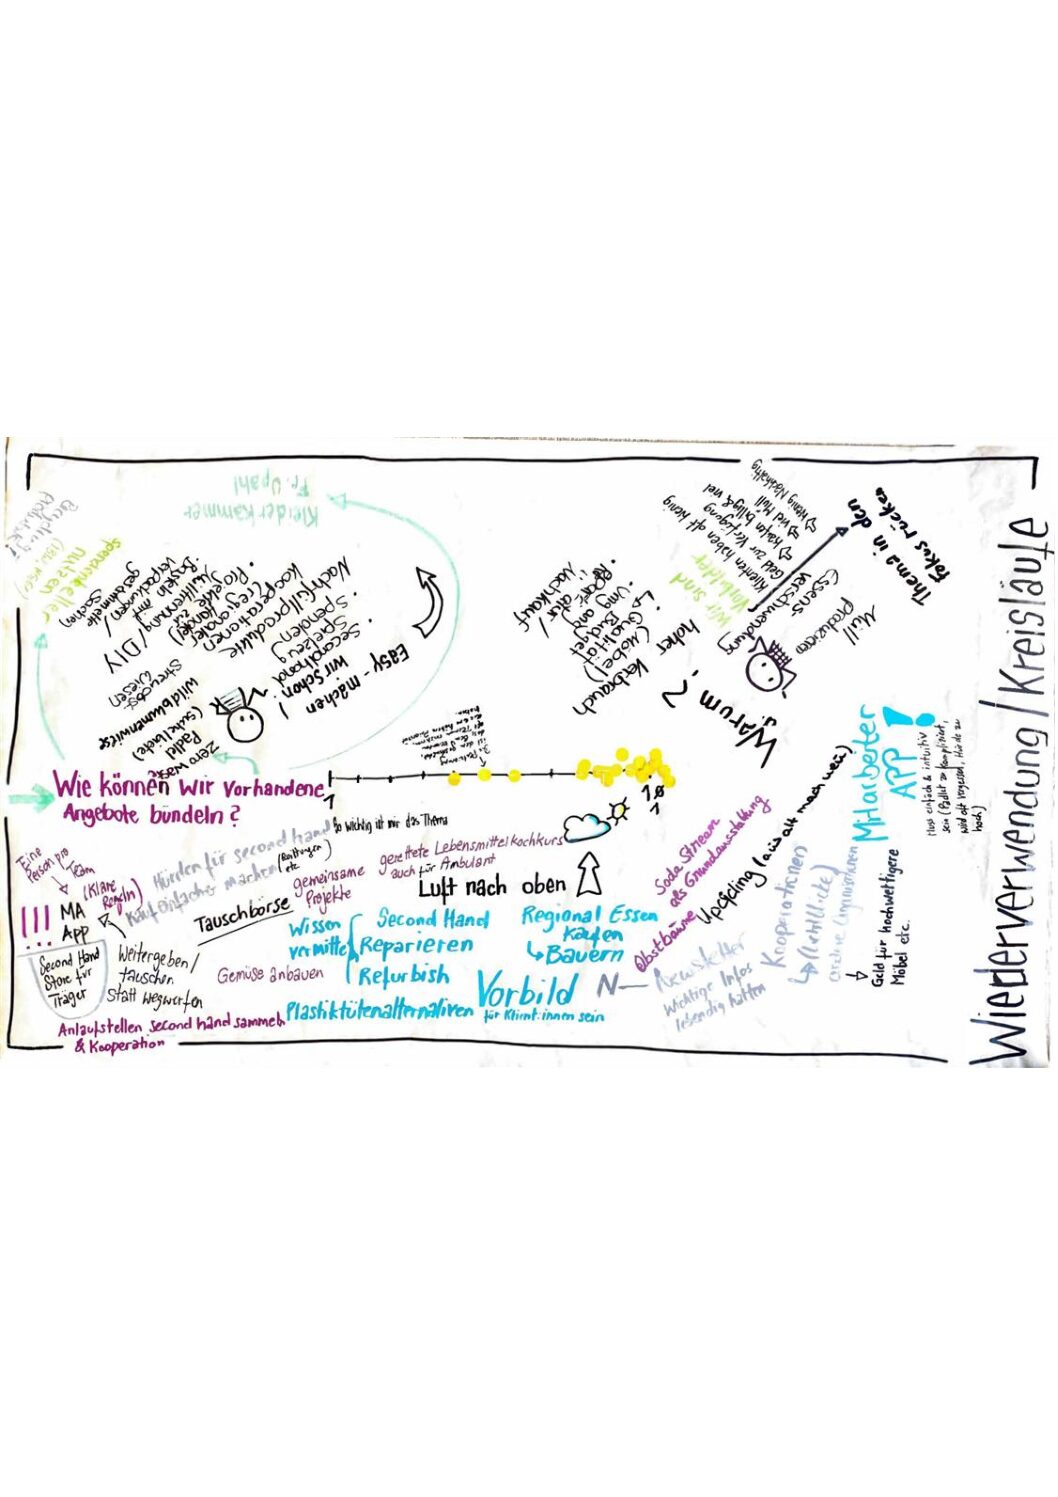 Wiederverwendung/Kreisläufe
Kleiderkammer
Fr. Upahl
spendenkeller
nutzen
Easy - machen
wir schon!
• Secondhand
Spielzeug
spenden
• Nachfüllprodukte
• Kooperationen
regionaler
Händler
• Projekte zur
Mülltrennung
• Basteln mit
Verpackungen/
gesammelte Sachen
/DIY
Streuobst
wiesen
wildblumenwiese
zero waste
Padlet
WIR
Warum?
hoher
Verbrauch
↳ Qualität
(Möbel)
Und Budget
Reparatur/
Nachkauf
Wir sind
Vorbilder
Klienten haben oft wenig
Geld zur Verfügung
⇒ kaufen billig & viel
⇒ viel Müll
⇒ wenig Nachhaltig
Essens-
verschwendung
Müll
produzieren
Thema in den
Fokus rücken
Wie können wir vorhandene
Angebote bündeln?
1
10
So wichtig ist mir das Thema
Eine
Person pro
Team
(Klare
Regeln)
!!!
MA
App
Second Hand
Store für
Träger
Hürden für second hand
Kauf einfacher machen
(Quittungen)
etc
Tauschbörse
gemeinsame
Projekte
gerettete Lebensmittelkochkurs
auch für Ambulant
Luft nach oben
Weitergeben/
tauschen
statt wegwerfen
Gemüse anbauen
Wissen
vermitteln
Second Hand
Reparieren
Refurbish
Regional Essen
kaufen
↳ Bauern
Plastiktütenalternativen
Vorbild
für Klient:innen sein
Anlaufstellen second hand sammeln
& Kooperation
Soda Stream
als Grundausstattung
Obstbäume
Upcycling (aus alt mach neu)
N— Newsletter
wichtige Infos
lebendig halten
Kooperationen
andere Organisationen
Mitarbeiter
APP!
Muss einfach & intuitiv
sein (Padlet zu kompliziert,
wird oft vergessen, Hürde zu
hoch)
Geld für hochwertigere
Möbel etc.